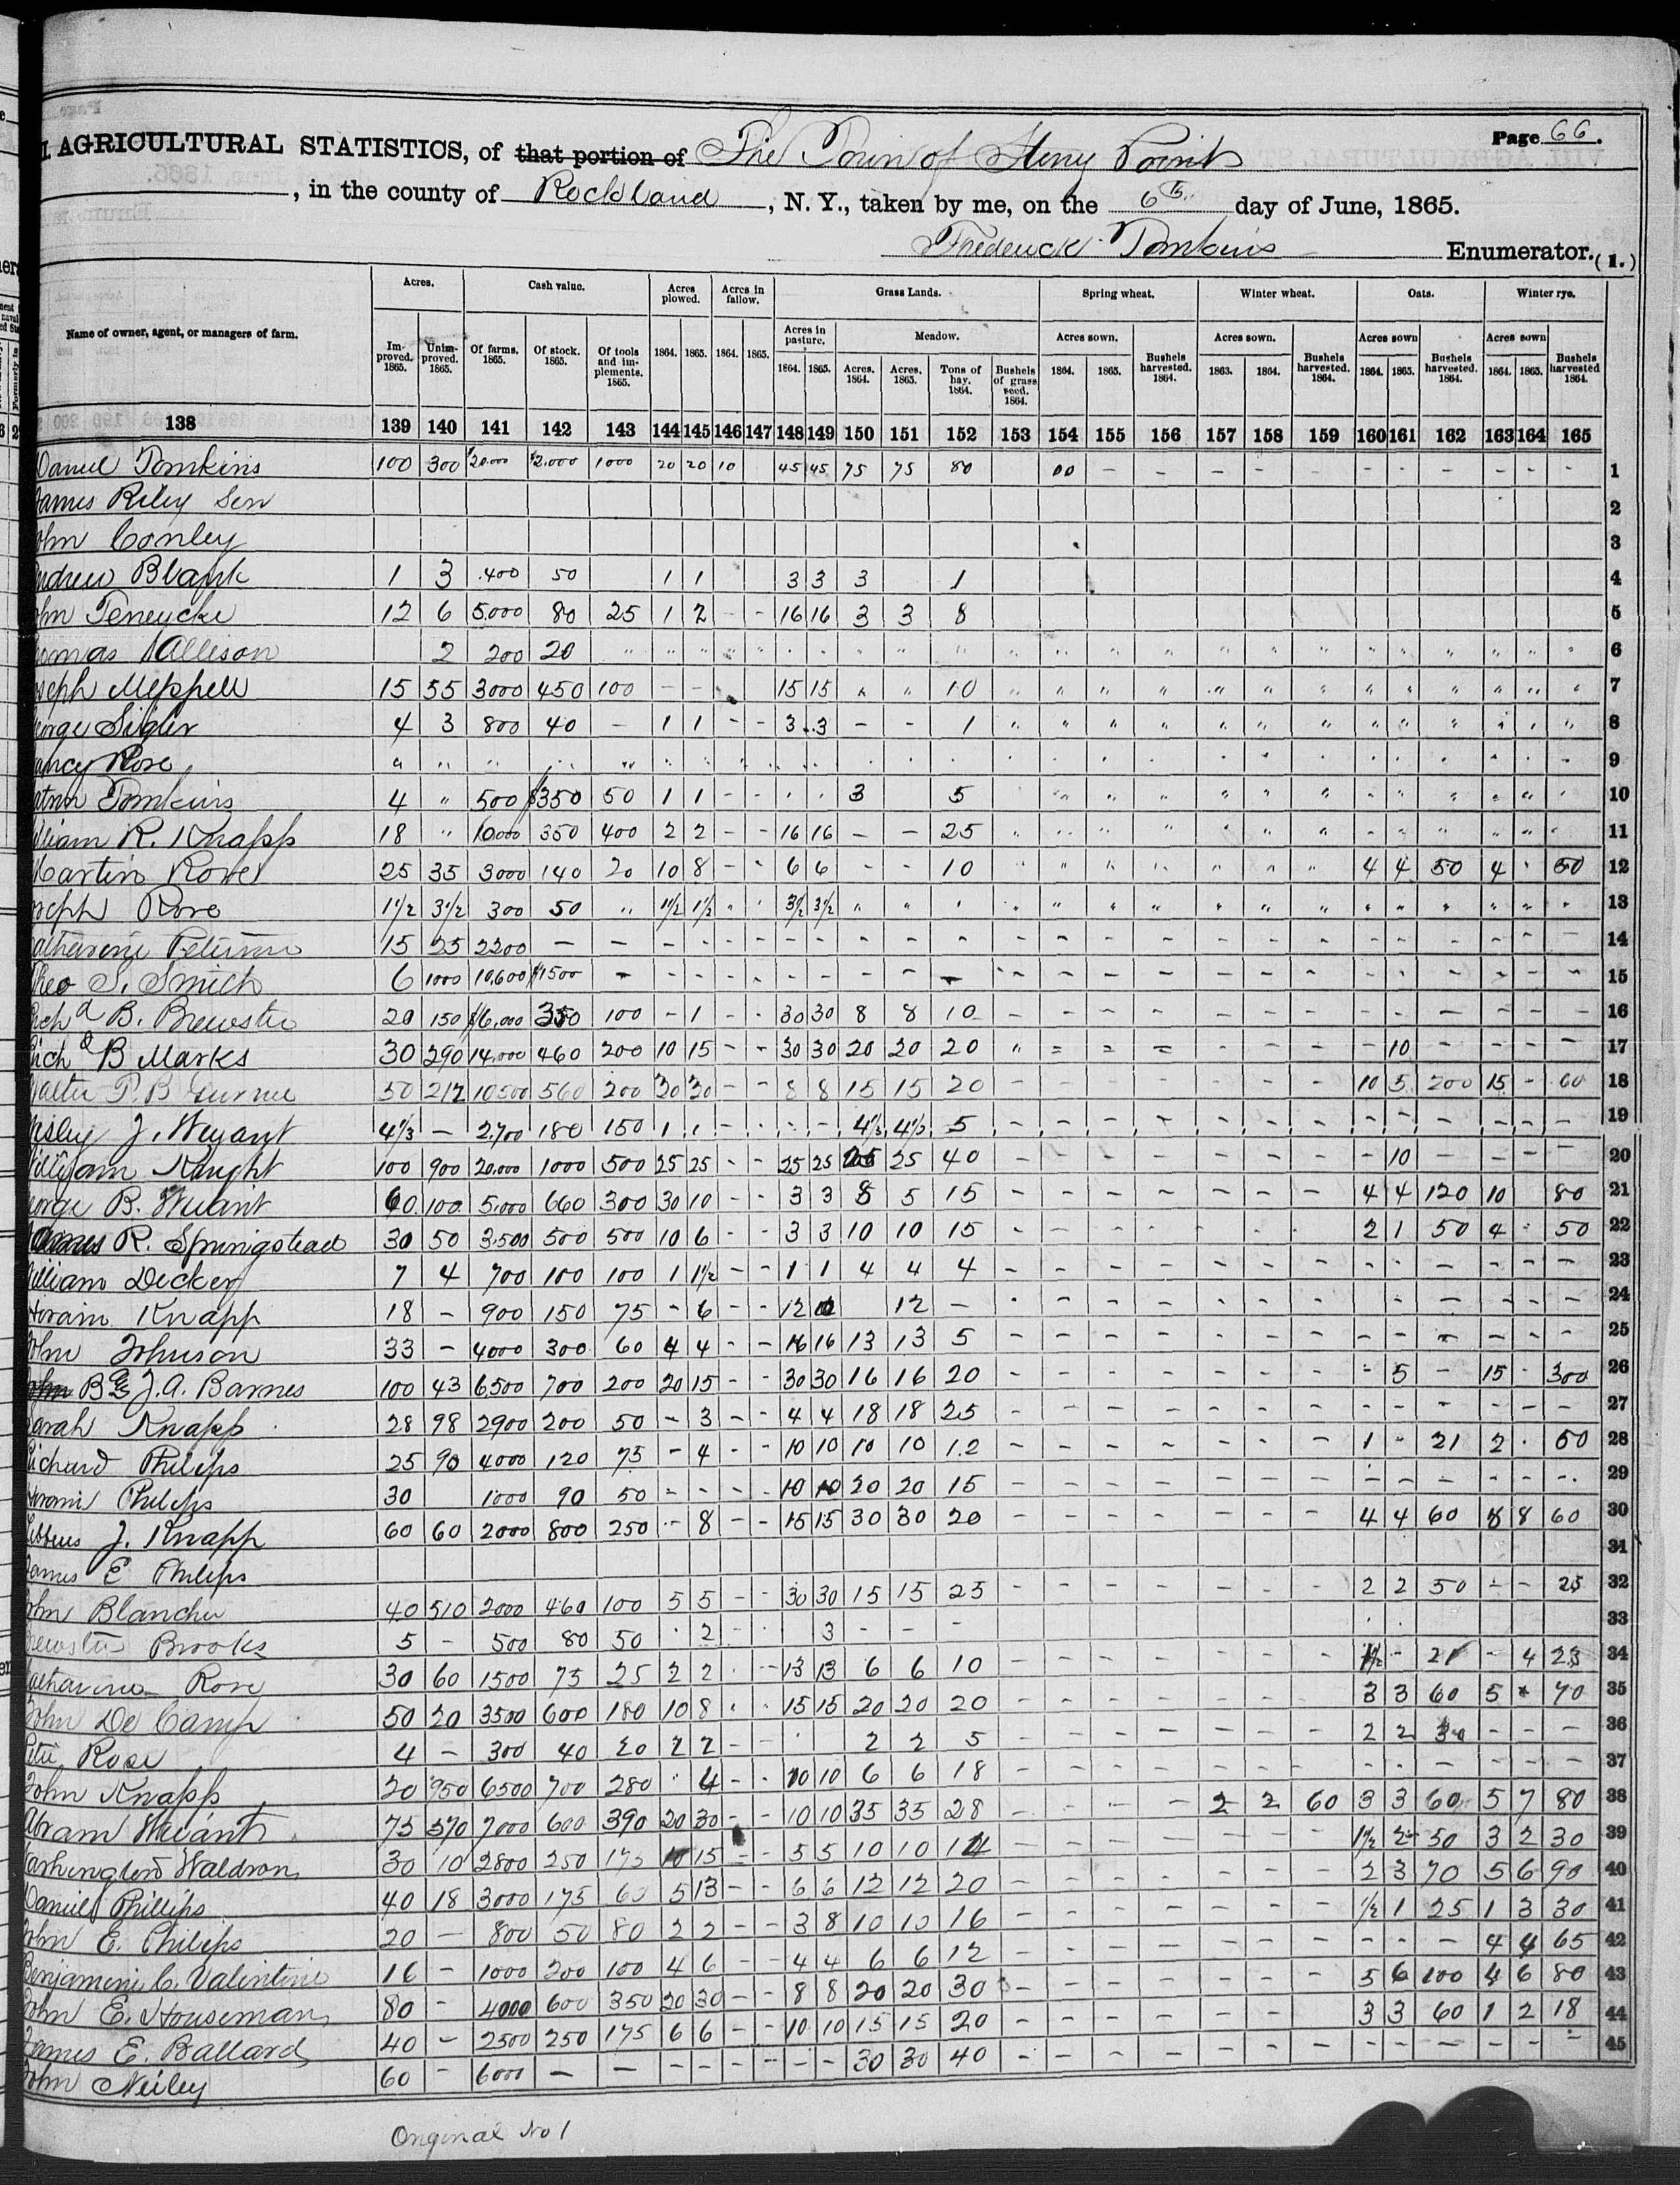 Page 66.
AGRICULTURAL STATISTICS, of that portion of The Town of Stony Point
, in the county of Rockland, N. Y., taken by me, on the 6th day of June, 1865.
Frederick Tomkins Enumerator. (1.)
Acres. Cash value. Acres plowed. Acres in fallow. Grass Lands. Spring wheat. Winter wheat. Oats. Winter rye.
Name of owner, agent, or managers of farm. Improved. 1865. Unimproved. 1865. Of farms. 1865. Of stock. 1865. Of tools and implements. 1865. 1864. 1865. 1864. 1865. Acres in pasture. 1864. 1865. Meadow. Acres. 1864. Acres. 1865. Tons of hay. 1864. Bushels of grass seed. 1864. Acres sown. 1864. 1865. Bushels harvested. 1864. Acres sown. 1863. 1864. Bushels harvested. 1864. Acres sown 1864. 1865. Bushels harvested. 1864. Acres sown 1864. 1865. Bushels harvested 1864.
138 139 140 141 142 143 144 145 146 147 148 149 150 151 152 153 154 155 156 157 158 159 160 161 162 163 164 165
Daniel Tomkins 100 300 $20.000 $2.000 1000 20 20 10 45 45 75 75 80 00 - - - - - - - - - - - - 1
James Riley Sen 2
John Conley 3
Andrew Blank 1 3 400 50 1 1 3 3 3 1 4
John Teneycke 12 6 5.000 80 25 1 2 - - 16 16 3 3 8 5
Thomas Allison 2 200 20 6
Joseph 15 55 3000 450 100 - - 15 15 " " 10 7
George Sigler 4 3 800 40 - 1 1 - - 3 3 - - 1 8
Nancy Rose 9
Tomkins 4 " 500 $350 50 1 1 - - 3 5 10
William R. Knapp 18 " 10.000 350 400 2 2 - - 16 16 - - 25 11
Martin Rose 25 35 3000 140 20 10 8 - - 6 6 - - 10 4 4 50 4 50 12
Joseph Rose 1 1/2 3 1/2 300 50 " 1 1/2 1 1/2 3 1/2 3 1/2 13
Catherine 15 25 2200 - - 14
Theo S. Smith 6 1000 10,600 $1500 - 15
Richd B. Brewster 20 150 $6,000 350 100 - 1 - - 30 30 8 8 10 16
Richd B Marks 30 290 14,000 460 200 10 15 - - 30 30 20 20 20 - 10 - - - - 17
Walter T. B Gurnee 50 212 10500 560 200 30 30 - - 8 8 15 15 20 10 5 200 15 - 60 18
J. Weyant 4 1/3 - 2,700 180 150 1 1 - - 4 1/3 4 1/3 5 19
William Knight 100 900 20,000 1000 500 25 25 - - 25 25 25 25 40 - 10 - - - - 20
George B. Weiant 60 100 5,000 660 300 30 10 - - 3 3 8 5 15 4 4 120 10 80 21
James R. Springstead 30 50 3,500 500 500 10 6 - - 3 3 10 10 15 2 1 50 4 50 22
William Decker 7 4 700 100 100 1 1 1/2 - - 1 1 4 4 4 23
Hiram Knapp 18 - 900 150 75 - 6 - - 12 12 - 24
John Johnson 33 - 4000 300 60 4 4 - - 16 16 13 13 5 25
B & J. A. Barnes 100 43 6,500 700 200 20 15 - - 30 30 16 16 20 - 5 - 15 - 300 26
Sarah Knapp 28 98 2900 200 50 - 3 - - 4 4 18 18 25 27
Richard Philips 25 90 4000 120 75 - 4 - - 10 10 10 10 12 1 - 21 2 50 28
Hiram Philips 30 1000 90 50 - - - - 10 10 20 20 15 29
J. Knapp 60 60 2000 800 250 - 8 - - 15 15 30 30 20 4 4 60 8 8 60 30
James E Philips 31
John Blancher 40 510 2000 460 100 5 5 - - 30 30 15 15 25 2 2 50 - - 25 32
Brewster Brooks 5 - 500 80 50 2 - 3 - - - 33
Catharine Rose 30 60 1500 75 25 2 2 - 13 13 6 6 10 1 1/2 - 21 - 4 23 34
John De Camp 50 20 3500 600 180 10 8 15 15 20 20 20 3 3 60 5 70 35
Peter Rose 4 - 300 40 20 2 2 - - 2 2 5 2 2 30 - - - 36
John Knapp 20 950 6500 700 280 4 - 10 10 6 6 18 37
Abram Weiant 75 570 7000 600 390 20 30 - - 10 10 35 35 28 2 2 60 3 3 60 5 7 80 38
Washington Waldron 30 10 2800 250 175 10 15 - - 5 5 10 10 14 1 1/2 2 50 3 2 30 39
Daniel Phillips 40 18 3000 175 60 5 13 - - 6 6 12 12 20 2 3 70 5 6 90 40
John E. Philips 20 - 800 50 80 2 2 - - 3 8 10 10 16 1/2 1 25 1 3 30 41
Benjamin C. Valintine 16 - 1000 200 100 4 6 - - 4 4 6 6 12 - - - 4 4 65 42
John E. Houseman 80 - 4000 600 350 20 30 - - 8 8 20 20 30 5 6 100 4 6 80 43
James E. Ballard 40 - 2500 250 175 6 6 - - 10 10 15 15 20 3 3 60 1 2 18 44
John Neiley 60 - 6000 - - - - - - - - 30 30 40 45
Original No 1